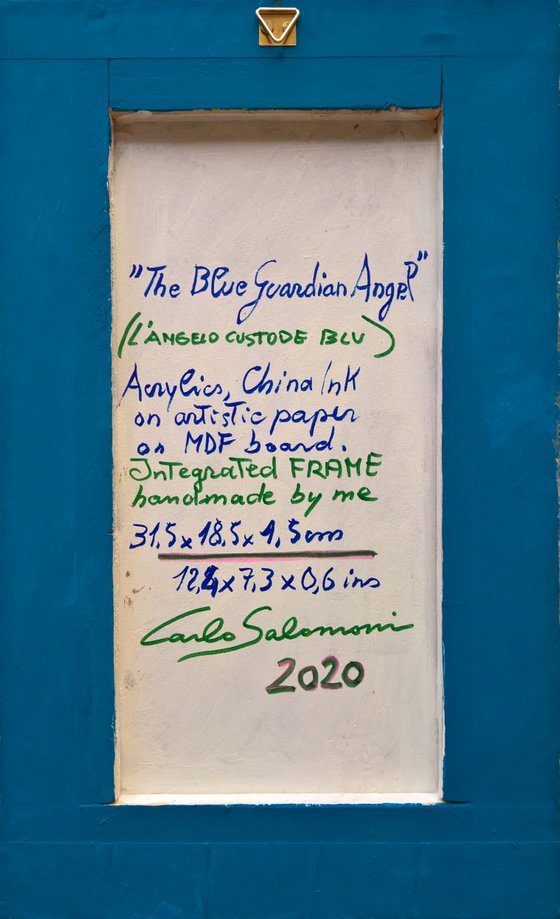 "The Blue Guardian Angel"
(L'ANGELO CUSTODE BLU)
Acrylics, China Ink
on artistic paper
on MDF board.
Integrated FRAME
handmade by me
31,5x18,5x1,5cm
12,4x7,3x0,6 ins
Carlo Salomoni
2020